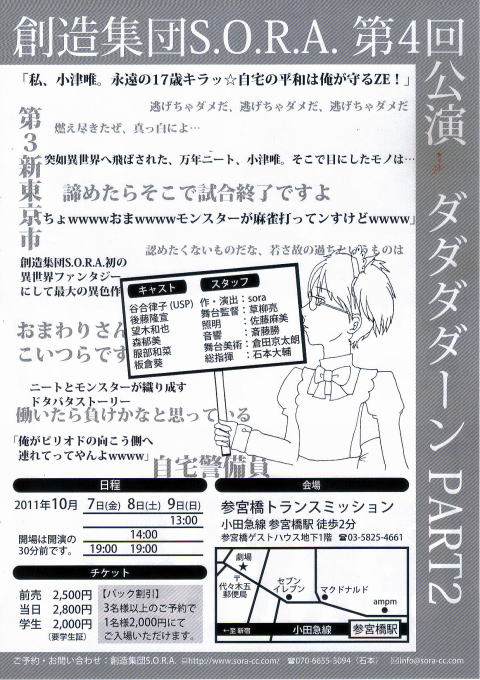 創造集団S.O.R.A. 第4回公演
ダダダダーン PART2
「私、小津唯。永遠の17歳キラッ☆自宅の平和は俺が守るZE！」
逃げちゃダメだ、逃げちゃダメだ、逃げちゃダメだ
燃え尽きたぜ、真っ白によ…
第3新東京市
突如異世界へ飛ばされた、万年ニート、小津唯。そこで目にしたモノは…
諦めたらそこで試合終了ですよ
「ちょwwwwおまwwwwモンスターが麻雀打ってンすけどwwww」
認めたくないものだな、若さ故の過ちというものは
創造集団S.O.R.A.初の
異世界ファンタジー
にして最大の異色作
キャスト
谷合律子(USP)
後藤隆宣
望木和也
森郁美
服部和菜
板倉葵
スタッフ
作・演出：sora
舞台監督：草柳亮
照明　：佐藤麻美
音響　：斎藤勝
舞台美術：倉田京太朗
総指揮　：石本大輔
おまわりさん
こいつらです
ニートとモンスターが織り成す
ドタバタストーリー
働いたら負けかなと思っている
「俺がピリオドの向こう側へ
連れてってやんよwwww」
自宅警備員
日程
2011年10月 7日(金) 8日(土) 9日(日)
13:00
14:00
19:00 19:00
開場は開演の
30分前です。
チケット
前売 2,500円
当日 2,800円
学生 2,000円
(要学生証)
【パック割引】
3名様以上のご予約で
1名様2,000円にて
ご入場いただけます。
会場
参宮橋トランスミッション
小田急線 参宮橋駅 徒歩2分
参宮橋ゲストハウス地下1階 ☎03-5825-4661
劇場
★
〒
代々木五
郵便局
セブン
イレブン
マクドナルド
ampm
←至新宿
小田急線
参宮橋駅
ご予約・お問い合わせ：創造集団S.O.R.A. http://www.sora-cc.com/ ☎070-6655-5094（石本） ✉info@sora-cc.com